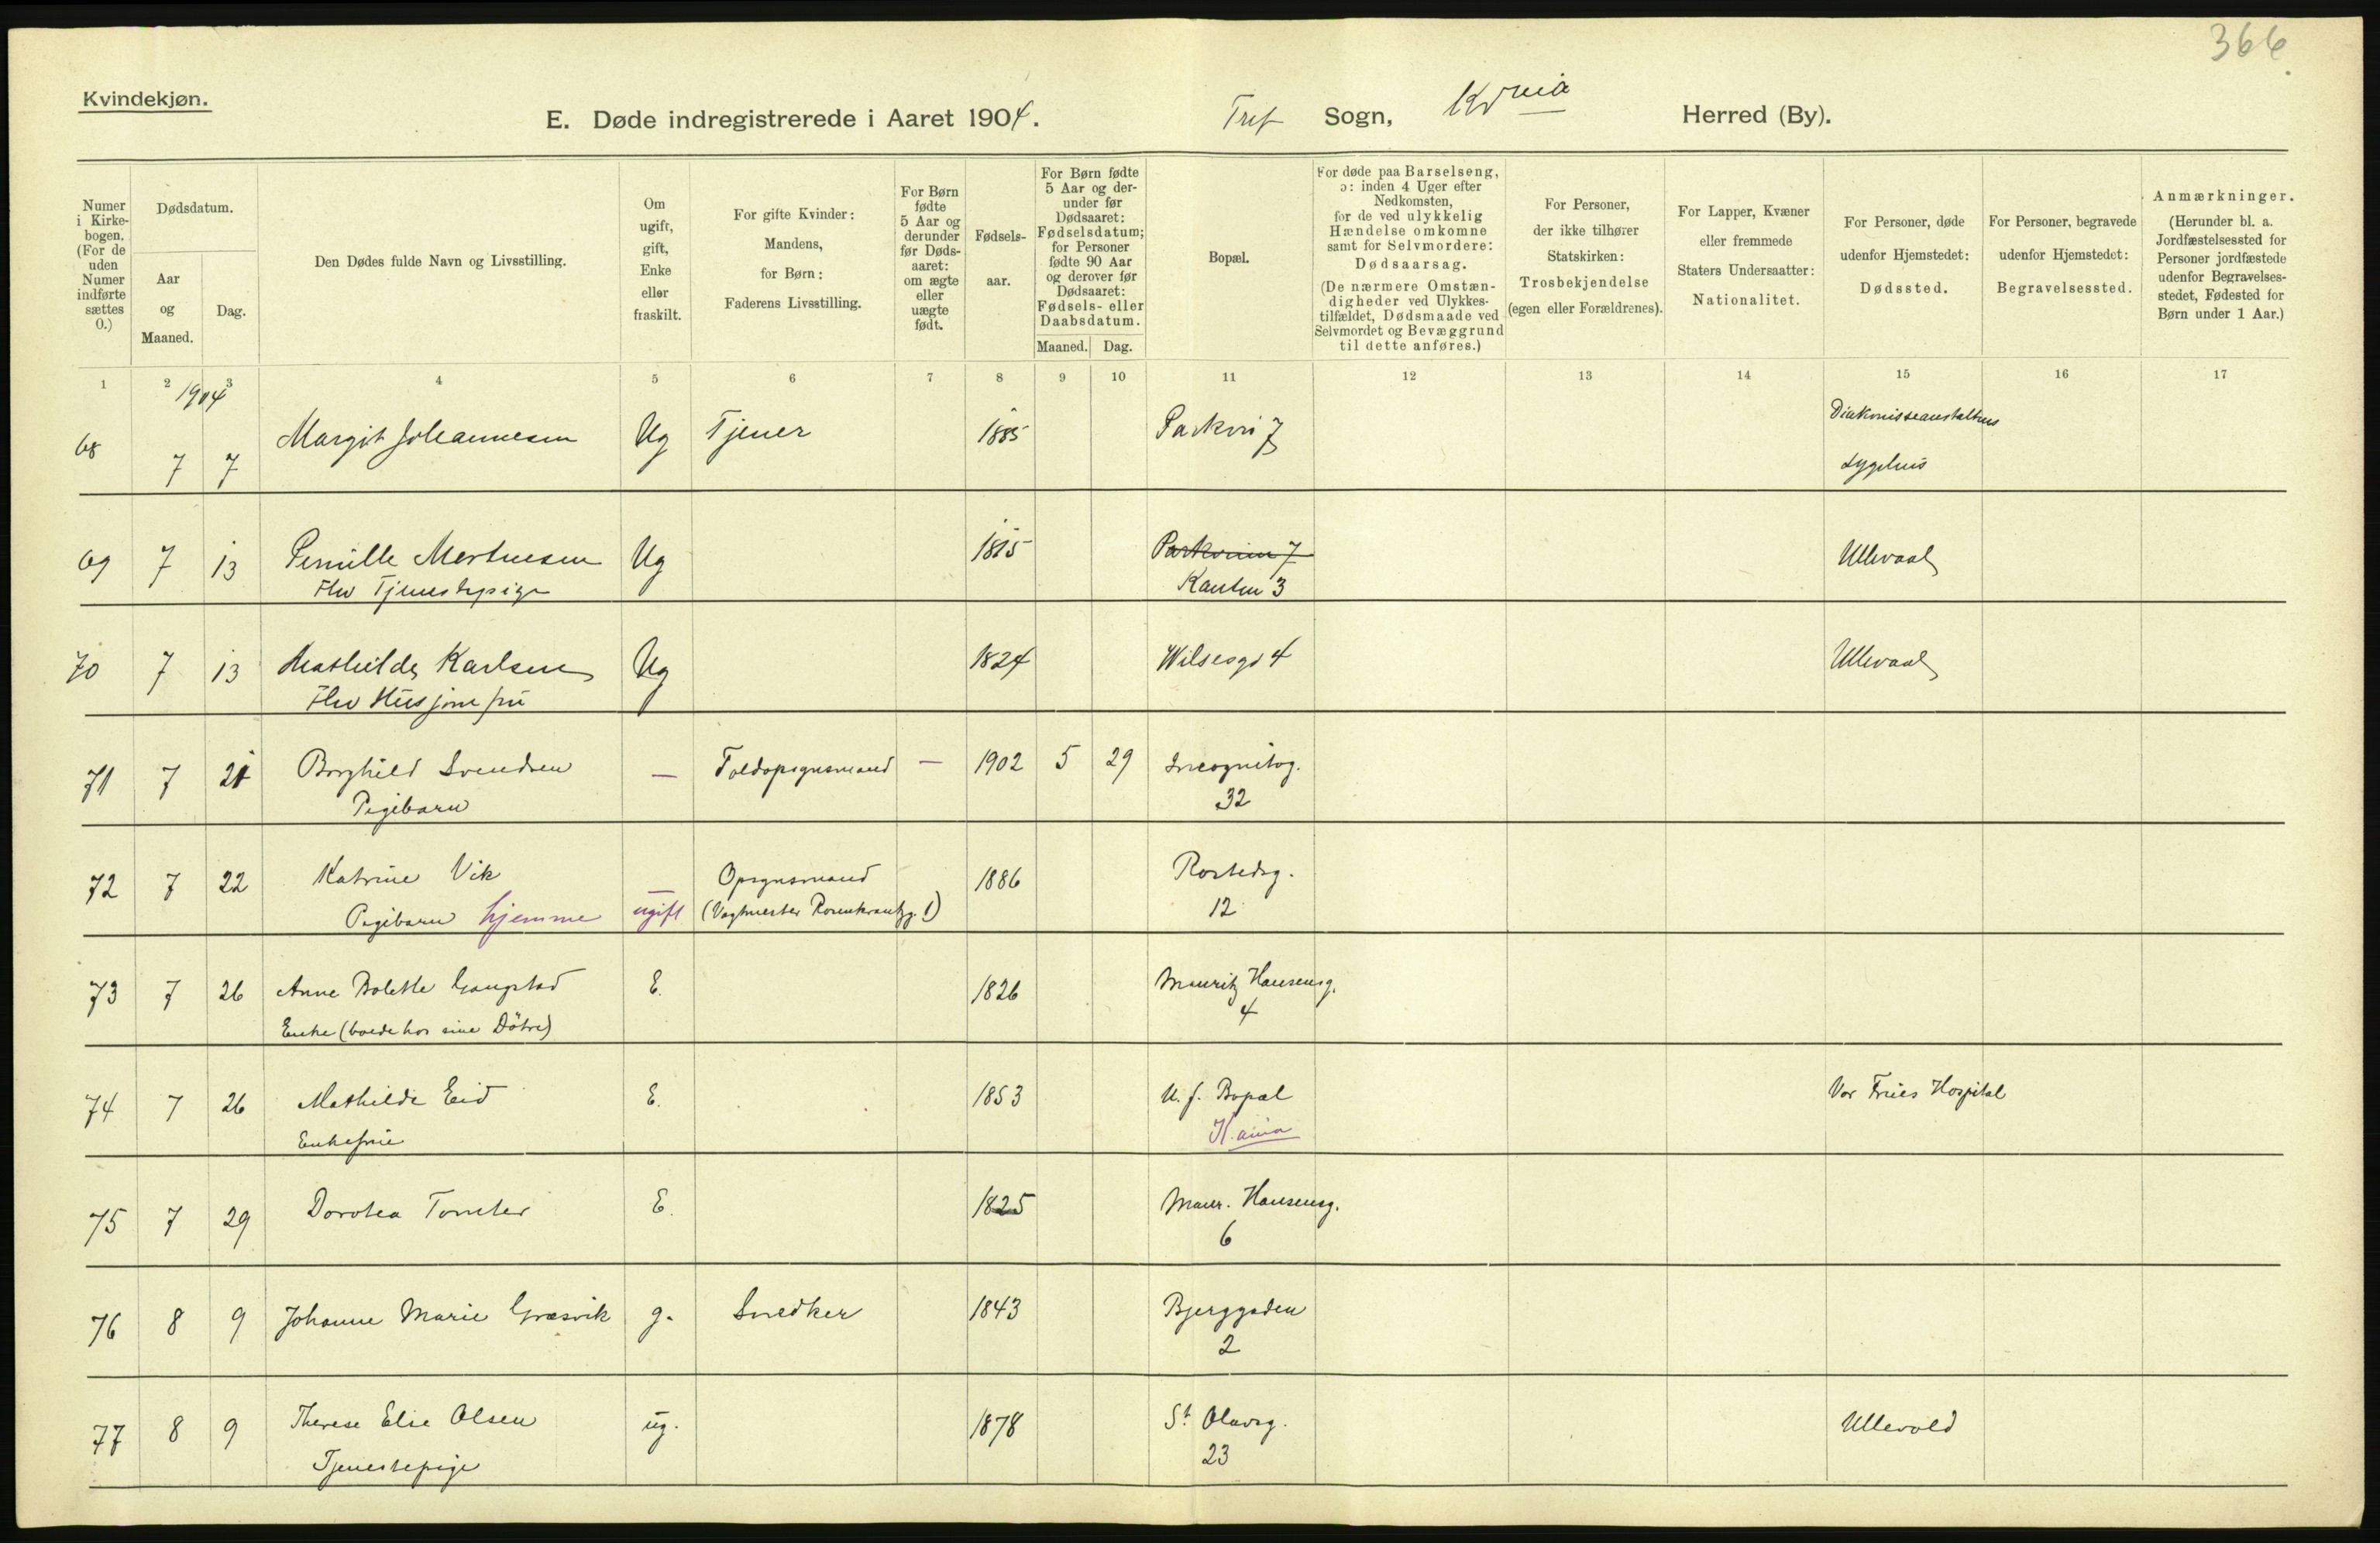 366.
Kvindekjøn.
E. Døde indregistrerede i Aaret 1904. Tref Sogn, Kr.nia Herred (By).
Numer i Kirkebogen. (For de uden Numer indførte sættes 0.)
Dødsdatum.
Aar og Maaned.
Dag.
Den Dødes fulde Navn og Livsstilling.
Om ugift, gift, Enke eller fraskilt.
For gifte Kvinder: Mandens, for Børn: Faderens Livsstilling.
For Børn fødte 5 Aar og derunder før Dødsaaret: om ægte eller uægte født.
Fødselsaar.
For Børn fødte 5 Aar og derunder før Dødsaaret: Fødselsdatum; for Personer fødte 90 Aar og derover før Dødsaaret: Fødsels- eller Daabsdatum.
Maaned. Dag.
Bopæl.
For døde paa Barselseng, ɔ: inden 4 Uger efter Nedkomsten, for de ved ulykkelig Hændelse omkomne samt for Selvmordere: Dødsaarsag. (De nærmere Omstændigheder ved Ulykkestilfældet, Dødsmaade ved Selvmordet og Bevæggrund til dette anføres.)
For Personer, der ikke tilhører Statskirken: Trosbekjendelse (egen eller Forældrenes).
For Lapper, Kvæner eller fremmede Staters Undersaatter: Nationalitet.
For Personer, døde udenfor Hjemstedet: Dødssted.
For Personer, begravede udenfor Hjemstedet: Begravelsessted.
Anmærkninger. (Herunder bl. a. Jordfæstelsessted for Personer jordfæstede udenfor Begravelsesstedet, Fødested for Børn under 1 Aar.)
1 2 3 4 5 6 7 8 9 10 11 12 13 14 15 16 17
1904
68 7 7 Margit Johannesen Ug Tjener 1885 Parkvei 7 Diakonisseanstaltens
Sygehus
69 7 13 Pernille Mortensen Ug 1815 Parkveien 7 Ullevaal
Fhv Tjenestepige Kanten 3
70 7 13 Mathilde Karlsen Ug 1824 Wilsesgd 4 Ullevaal
Fhv Husjomfru
71 7 21 Borghild Svendsen — Toldopsynsmand — 1902 5 29 Incognitog.
Pigebarn 32
72 7 22 Katrine Vik Opsynsmand 1886 Rostedsg.
Pigebarn hjemme ugift (Vagtmester Rosenkrantzg. 1) 12
73 7 26 Anne Bolette Gangstad E. 1826 Mauritz Hansensg.
Enke (boede hos sine Döttre) 4
74 7 26 Mathilde Eid E. 1853 U. f. Bopæl Vor Frues Hospital
Enkefrue K.ania
75 7 29 Dorotea Tomter E. 1825 Maur. Hansensg.
6
76 8 9 Johanne Marie Græsvik g. Snedker 1843 Bjerggaden
2
77 8 9 Therese Elise Olsen ug. 1878 St. Olavsg. Ullevold
Tjenestepige 23